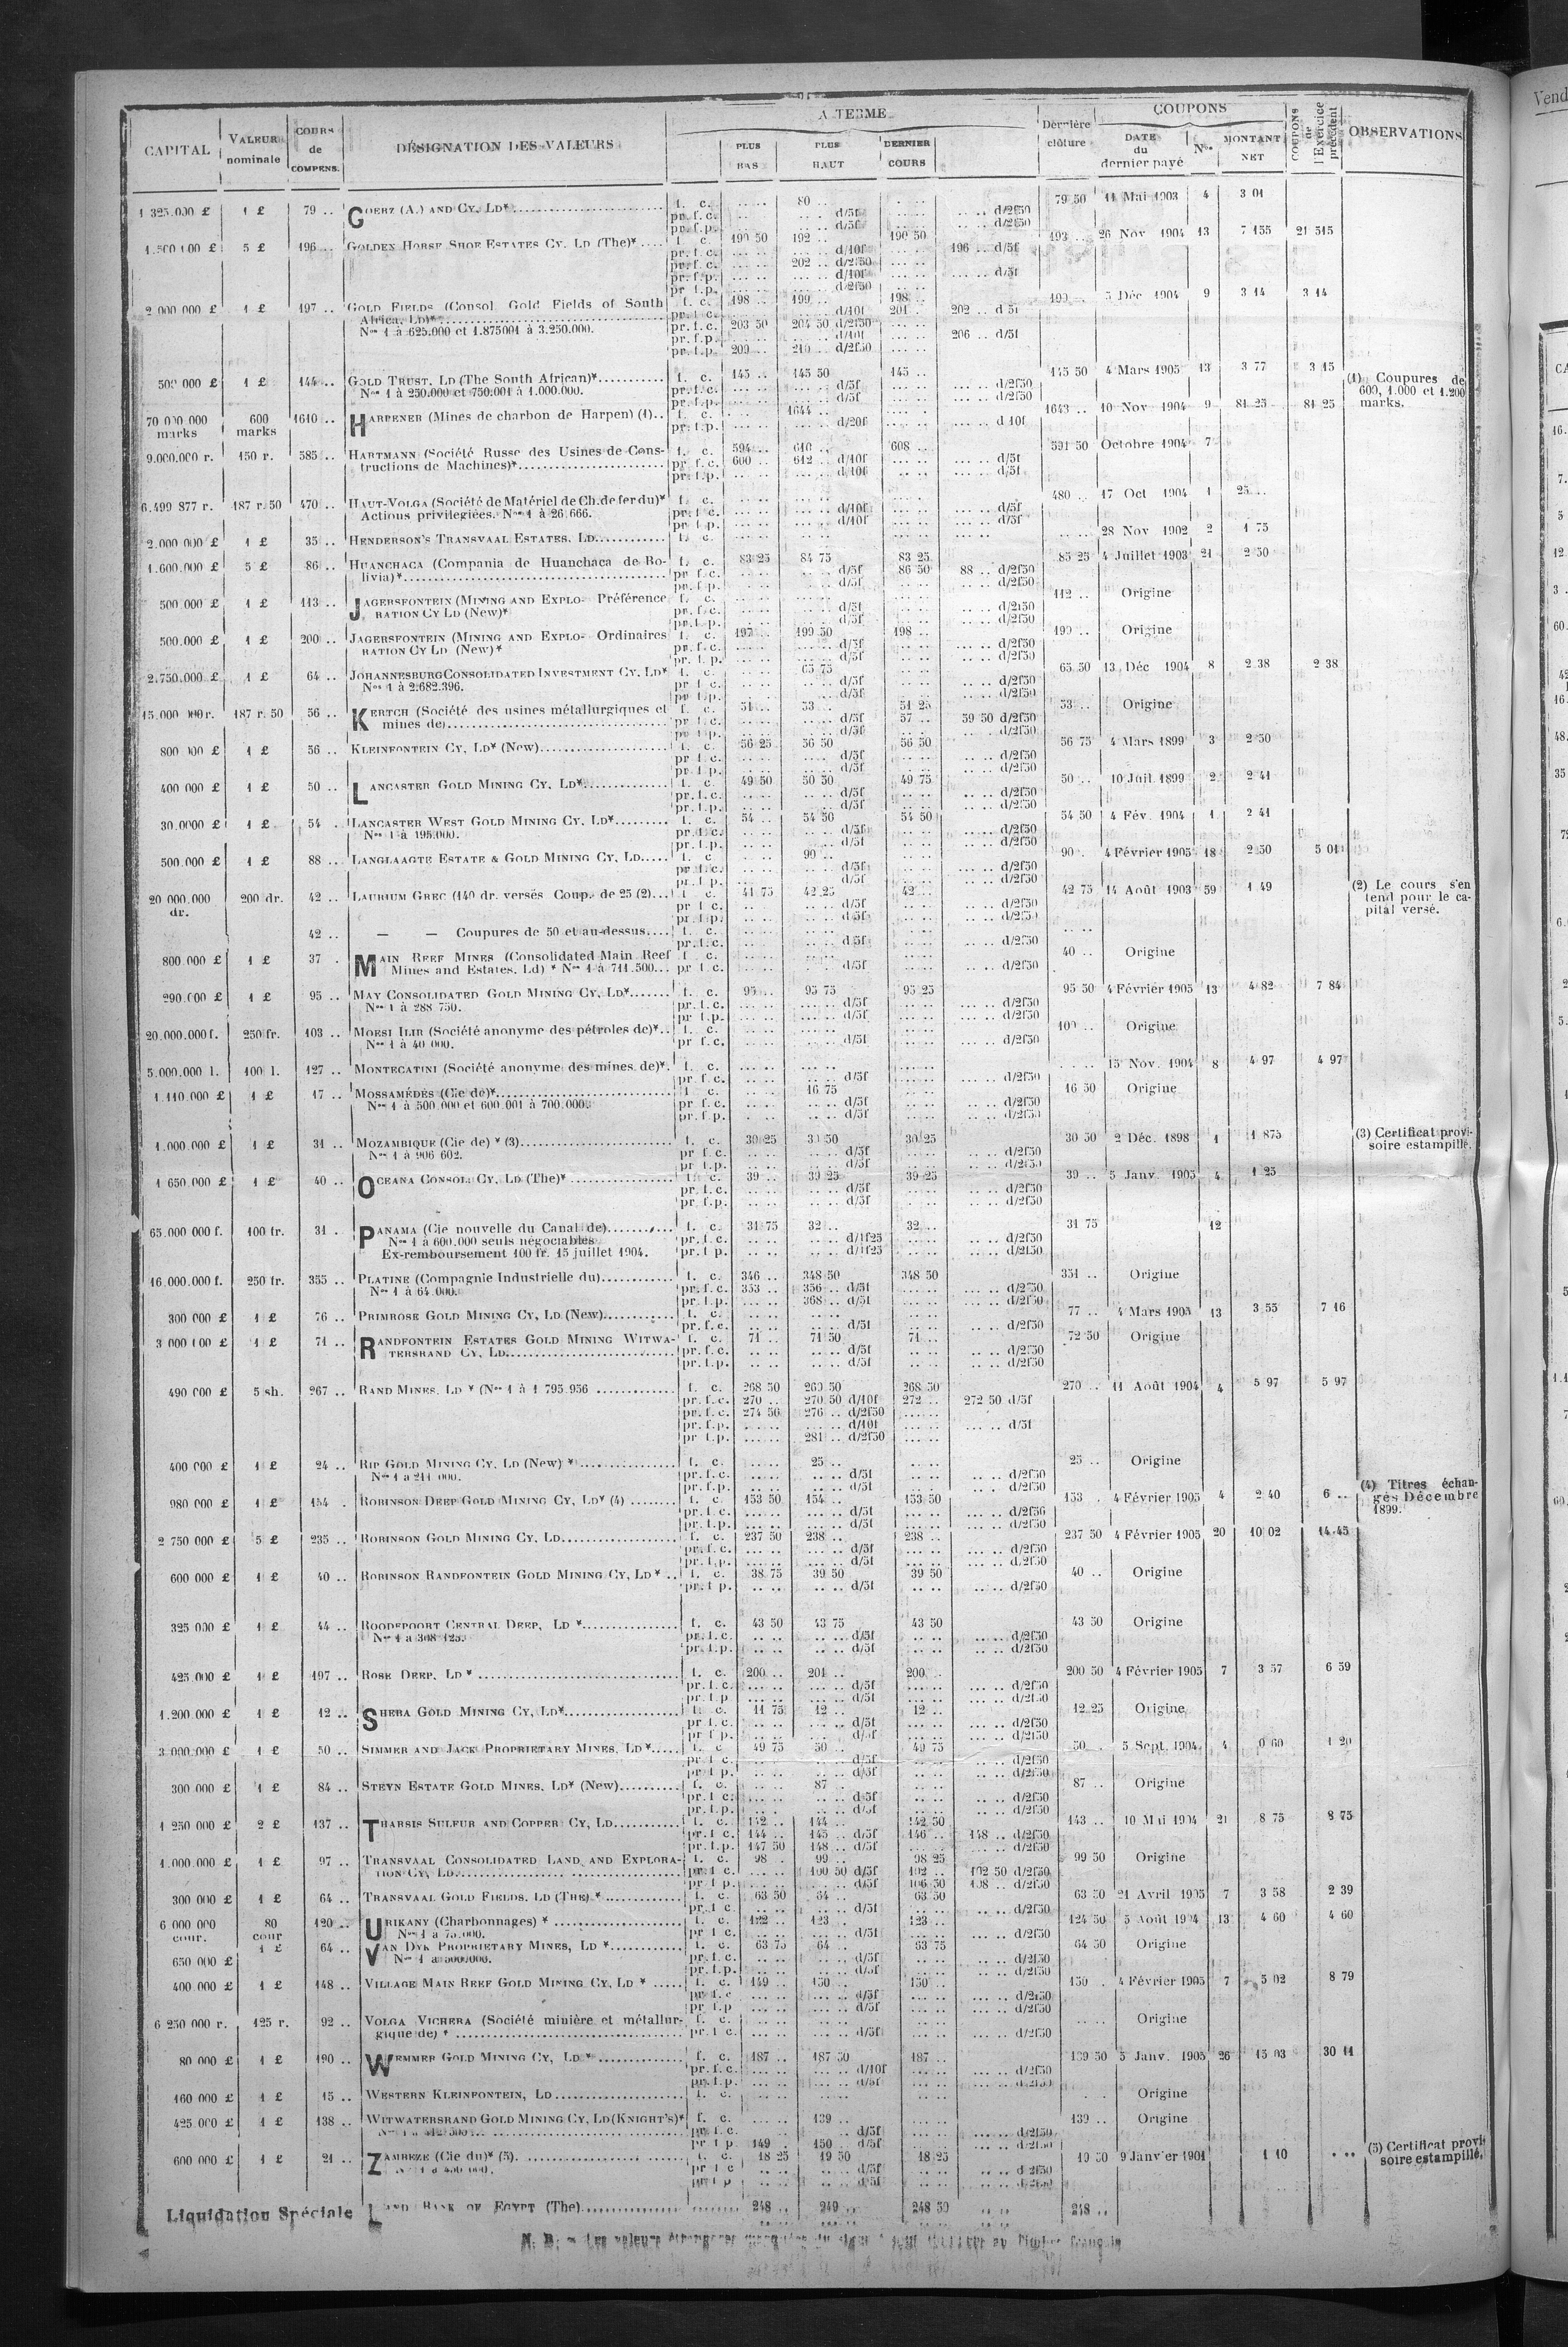 A TERME
COUPONS
CAPITAL VALEUR nominale COURS de COMPENS. DÉSIGNATION DES VALEURS PLUS BAS PLUS HAUT DERNIER COURS Dernière clôture DATE du dernier payé Nos MONTANT NET COUPONS de l'Exercice précédent OBSERVATIONS
1 325.000 £ 1 £ 79 .. GOERZ (A.) AND CY, LD* f. c. 80 .. 79 50 11 Mai 1903 4 3 01
5 £ 196 .. GOLDEN HORSE SHOE ESTATES CY. LD (The)* f. c. 190 50 192 .. 190 50 193 .. 26 Nov 1904 13 7 155 21 515
pr. f. c. d/10f 196 .. d/5f
pr. f. c. 202 .. d/2f50
2 000 000 £ 1 £ 197 .. GOLD FIELDS (Consol. Gold Fields of South f. c. 198 .. 199 .. 198 .. 199 .. 5 Déc 1904 9 3 14 3 14
Africa, Ld)* pr. f. c. d/10f 201 .. 202 .. d/5f
Nos 1 à 625.000 et 1.875001 à 3.250.000. pr. f. c. 203 50 204 50 d/2f50
pr. f. p. d/10f 206 .. d/5f
pr. f. p. 209 .. 210 .. d/2f50
500 000 £ 1 £ 144 .. GOLD TRUST, LD (The South African)* f. c. 145 .. 145 50 145 .. 145 50 4 Mars 1905 13 3 77 3 15 (1) Coupures de
Nos 1 à 250.000 et 750.001 à 1.000.000. 600, 1.000 et 1.200 marks.
70 000 000 marks 600 marks 1610 .. HARPENER (Mines de charbon de Harpen) (1).. f. c. 1644 .. 1643 .. 10 Nov 1904 9 81 25 81 25
pr. f. p. d/20f d 10f
9.000.000 r. 150 r. 585 .. HARTMANN (Société Russe des Usines de Cons- f. c. 594 .. 610 .. 608 .. 591 50 Octobre 1904 7
tructions de Machines)* pr. f. c. 600 .. 612 .. d/10f d/5f
6.499 877 r. 187 r. 50 470 .. HAUT-VOLGA (Société de Matériel de Ch. de fer du)* f. c. 480 .. 17 Oct 1904 1 25 ..
Actions privilegiées. Nos 1 à 26 666. pr. f. c. d/10f d/5f
2.000 000 £ 1 £ 35 .. HENDERSON'S TRANSVAAL ESTATES, LD f. c. 28 Nov 1902 2 1 75
1.600.000 £ 5 £ 86 .. HUANCHACA (Compania de Huanchaca de Bo- f. c. 83 25 84 75 83 25 85 25 4 Juillet 1903 21 2 50
livia)* pr. f. c. d/5f 86 50 88 .. d/2f50
500 000 £ 1 £ 113 .. JAGERSFONTEIN (MINING AND EXPLO- Préférence f. c. 112 .. Origine
RATION CY LD (New)* pr. f. c. d/5f d/2f50
500.000 £ 1 £ 200 .. JAGERSFONTEIN (MINING AND EXPLO- Ordinaires f. c. 197 .. 199 50 198 .. 199 .. Origine
RATION CY LD (New)* pr. f. c. d/5f d/2f50
2.750.000 £ 1 £ 64 .. JOHANNESBURG CONSOLIDATED INVESTMENT CY. LD* f. c. 65 75 65 50 13 Déc 1904 8 2 38 2 38
Nos 1 à 2.682.396. pr. f. c. d/5f d/2f50
15.000 000 r. 187 r. 50 56 .. KERTCH (Société des usines métallurgiques et f. c. 51 .. 53 .. 51 25 53 .. Origine
mines de) pr. f. c. d/5f 57 .. 59 50 d/2f50
800 000 £ 1 £ 56 .. KLEINFONTEIN CY, LD* (New) f. c. 56 25 56 50 56 50 56 75 4 Mars 1899 3 2 50
400 000 £ 1 £ 50 .. LANCASTER GOLD MINING CY, LD* f. c. 49 50 50 50 49 75 50 .. 10 Juil. 1899 2 2 41
30.0000 £ 1 £ 54 .. LANCASTER WEST GOLD MINING CY. LD* f. c. 54 .. 54 50 54 50 54 50 4 Fév. 1904 1 2 41
Nos 1 à 195.000. pr. f. c. d/5f d/2f50
500.000 £ 1 £ 88 .. LANGLAAGTE ESTATE & GOLD MINING CY, LD f. c. 90 .. 90 . 4 Février 1905 18 2 50 5 01
20 000.000 dr. 200 dr. 42 .. LAURIUM GREC (140 dr. versés Coup. de 25 (2) f. c. 41 75 42 25 42 .. 42 75 14 Août 1903 59 1 49 (2) Le cours s'entend pour le capital versé.
42 .. — — Coupures de 50 et au-dessus f. c.
800.000 £ 1 £ 37 . MAIN REEF MINES (Consolidated Main Reef f. c. 40 .. Origine
Mines and Estates, Ld) * Nos 1 à 711.500 pr. f. c. d/5f d/2f50
290.000 £ 1 £ 95 .. MAY CONSOLIDATED GOLD MINING CY, LD* f. c. 95 .. 95 75 95 25 95 50 4 Février 1905 13 4 82 7 84
Nos 1 à 288 750. pr. f. c. d/5f d/2f50
20.000.000 f. 250 fr. 103 .. MOESI ILIR (Société anonyme des pétroles de)* f. c. 100 .. Origine
Nos 1 à 40 000. pr. f. c. d/5f d/2f50
5.000.000 l. 100 l. 127 .. MONTECATINI (Société anonyme des mines de)* f. c. 15 Nov. 1904 8 4 97 4 97
1.110.000 £ 1 £ 17 .. MOSSAMÉDÈS (Cie de)* f. c. 16 75 16 50 Origine
Nos 1 à 500.000 et 600.001 à 700.000. pr. f. c. d/5f d/2f50
1.000.000 £ 1 £ 31 .. MOZAMBIQUE (Cie de) * (3) f. c. 30 25 30 50 30 25 30 50 2 Déc. 1898 1 1 875 (3) Certificat provisoire estampillé.
Nos 1 à 906 602. pr. f. c. d/5f d/2f50
1 650.000 £ 1 £ 40 .. OCEANA CONSOL. CY, LD (The)* f. c. 39 .. 39 25 39 25 39 .. 5 Janv. 1905 4 1 25
65.000 000 f. 100 fr. 31 . PANAMA (Cie nouvelle du Canal de) f. c. 31 75 32 .. 32 .. 31 75 12
Nos 1 à 600.000 seuls négociables pr. f. c. d/1f25 d/2f50
Ex-remboursement 100 fr. 15 juillet 1904. pr. f. p. d/1f25 d/2f50
16.000.000 f. 250 fr. 355 .. PLATINE (Compagnie Industrielle du) f. c. 346 .. 348 50 348 50 351 .. Origine
Nos 1 à 64.000. pr. f. c. 353 .. 356 .. d/5f d/2f50
pr. f. p. 368 .. d/5f d/2f50
300 000 £ 1 £ 76 .. PRIMROSE GOLD MINING CY, LD (New) f. c. 77 .. 4 Mars 1905 13 3 55 7 16
3 000 000 £ 1 £ 71 .. RANDFONTEIN ESTATES GOLD MINING WITWA- f. c. 71 .. 71 50 71 .. 72 50 Origine
TERSRAND CY, LD pr. f. c. d/5f d/2f50
490 000 £ 5 sh. 267 .. RAND MINES, LD * (Nos 1 à 1 795 956 f. c. 268 50 269 50 268 50 270 .. 11 Août 1904 4 5 97 5 97
pr. f. c. 270 .. 270 50 d/10f 272 .. 272 50 d/5f
pr. f. c. 274 50 276 .. d/2f50
pr. f. p. d/10f d/5f
pr. f. p. 281 .. d/2f50
400 000 £ 1 £ 24 .. RIP GOLD MINING CY, LD (New) * f. c. 25 .. 25 .. Origine
Nos 1 à 211 000. pr. f. c. d/5f d/2f50
980 000 £ 1 £ 154 . ROBINSON DEEP GOLD MINING CY, LD* (4) f. c. 153 50 154 .. 153 50 153 . 4 Février 1905 4 2 40 6 .. (4) Titres échangés Décembre 1899.
2 750 000 £ 5 £ 235 .. ROBINSON GOLD MINING CY, LD f. c. 237 50 238 .. 238 .. 237 50 4 Février 1905 20 10 02 14 45
600 000 £ 1 £ 40 .. ROBINSON RANDFONTEIN GOLD MINING CY, LD * f. c. 38 75 39 50 39 50 40 .. Origine
325 000 £ 1 £ 44 .. ROODEPOORT CENTRAL DEEP, LD * f. c. 43 50 43 75 43 50 43 50 Origine
Nos 1 à 308 125. pr. f. c. d/5f d/2f50
425.000 £ 1 £ 197 .. ROSE DEEP, LD * f. c. 200 .. 201 .. 200 .. 200 50 4 Février 1905 7 3 57 6 59
1.200.000 £ 1 £ 12 .. SHEBA GOLD MINING CY, LD* f. c. 11 75 12 .. 12 .. 12 25 Origine
3 000.000 £ 1 £ 50 .. SIMMER AND JACK PROPRIETARY MINES, LD * f. c. 49 75 50 .. 49 75 50 . 5 Sept. 1904 4 0 60 1 20
300 000 £ 1 £ 84 .. STEYN ESTATE GOLD MINES, LD* (New) f. c. 87 .. 87 .. Origine
1 250 000 £ 2 £ 137 .. THARSIS SULFUR AND COPPER CY, LD f. c. 142 .. 144 .. 142 50 143 .. 10 Mai 1904 21 8 75 8 75
pr. f. c. 144 .. 145 .. d/5f 146 .. 148 .. d/2f50
pr. f. p. 147 50 148 .. d/5f d/2f50
1.000.000 £ 1 £ 97 .. TRANSVAAL CONSOLIDATED LAND AND EXPLORA- f. c. 98 . 99 .. 98 25 99 50 Origine
TION CY, LD pr. f. c. 100 50 d/5f 102 .. 102 50 d/2f50
pr. f. p. d/5f 106 50 108 .. d/2f50
300 000 £ 1 £ 64 .. TRANSVAAL GOLD FIELDS, LD (THE) * f. c. 63 50 64 .. 63 50 63 50 21 Avril 1905 7 3 58 2 39
6 000 000 cour. 80 cour 120 .. URIKANY (Charbonnages) * f. c. 122 .. 123 .. 123 .. 124 50 5 Août 1904 13 4 60 4 60
Nos 1 à 75.000. pr. f. c. d/5f d/2f50
650 000 £ 1 £ 64 .. VAN DYK PROPRIETARY MINES, LD * f. c. 63 75 64 .. 63 75 64 50 Origine
Nos 1 à 500.000.
400 000 £ 1 £ 148 .. VILLAGE MAIN REEF GOLD MINING CY, LD * f. c. 149 .. 150 .. 150 .. 150 . 4 Février 1905 7 5 02 8 79
6 250 000 r. 125 r. 92 .. VOLGA VICHERA (Société minière et métallur- f. c. Origine
gique de) * pr. f. c. d/5f d/2f50
80 000 £ 1 £ 190 .. WEMMER GOLD MINING CY, LD * f. c. 187 .. 187 50 187 .. 189 50 5 Janv. 1905 26 15 03 30 11
160 000 £ 1 £ 15 .. WESTERN KLEINFONTEIN, LD f. c. Origine
425 000 £ 1 £ 138 .. WITWATERSRAND GOLD MINING CY, LD (KNIGHT'S)* f. c. 139 .. 139 .. Origine
pr. f. p. 149 . 150 .. d/5f
600 000 £ 1 £ 21 .. ZAMBEZE (Cie du)* (5). f. c. 18 25 19 50 18 25 19 50 9 Janvier 1901 1 10 (5) Certificat provisoire estampillé.
Liquidation Spéciale LAND BANK OF EGYPT (The) 248 .. 249 .. 248 50 248 ..
Vend